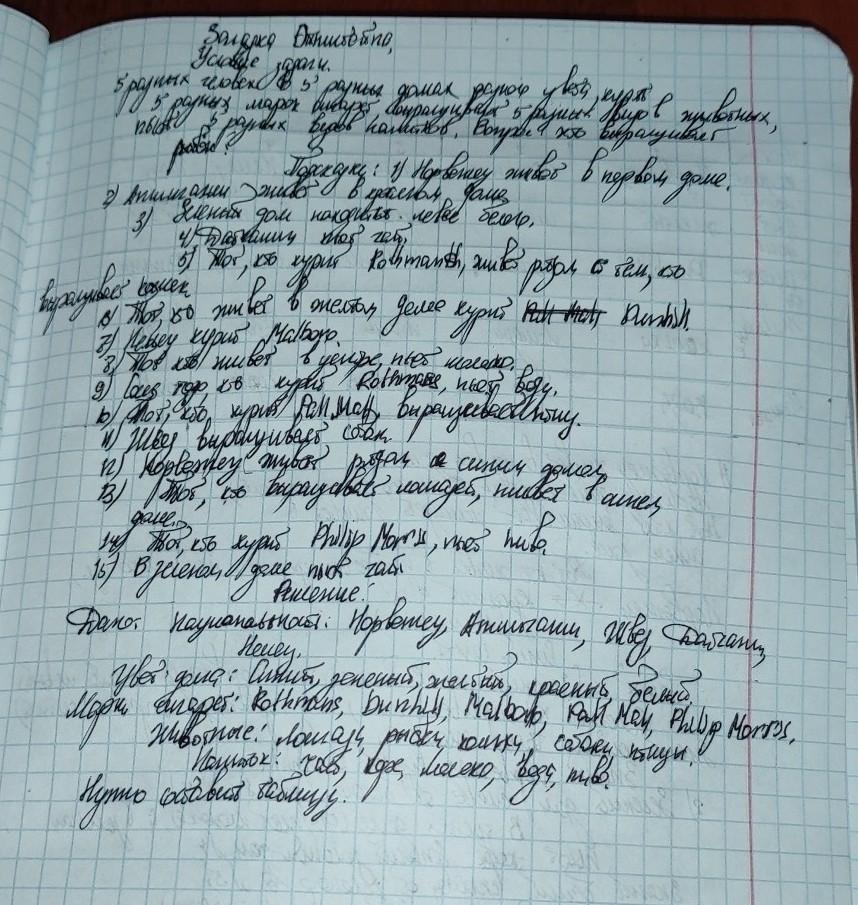 Загадка Эйнштейна,
Условие задачи.
5 разных человек в 5 разных домах разного цвета, курят
5 разных марок сигарет выращивают 5 разных видов животных,
пьют 5 разных видов напитков. Вопрос кто выращивает
рыбок?
Подсказки: 1) Норвежец живёт в первом доме.
2) Англичанин живёт в красном доме,
3) Зеленый дом находится левее белого,
4) Датчанин пьёт чай,
5) Тот, кто курит Rothmans, живёт рядом с тем, кто
выращивает кошек
6) Тот, кто живёт в желтом доме курит Dunhill.
7) Немец курит Malboro.
8) Тот кто живёт в центре, пьёт молоко.
9) Сосед того, кто курит Rothmans, пьёт воду.
10) Тот, кто, курит Pall Mall, выращивает птиц.
11) Швед выращивает собак
12) Норвежец живёт рядом с синим домом,
13) Тот, кто выращивает лошадей, живет в синем,
доме.
14) Тот, кто курит Philip Morris, пьёт пиво.
15) В зеленом доме пьют
Решение:
Дано: Национальность: Норвежец, Англичанин, Швед, Датчанин,
Немец.
Цвет дома: Синий, зеленый, желтый, красный, белый
Марки сигарет: Rothmans, Dunhill, Malboro, Pall Mall, Philip Morris.
Животные: Лошади, рыбки, кошки, собаки, птицы.
Напиток: Чай, кофе, молоко, вода, пиво.
Нужно составить таблицу.